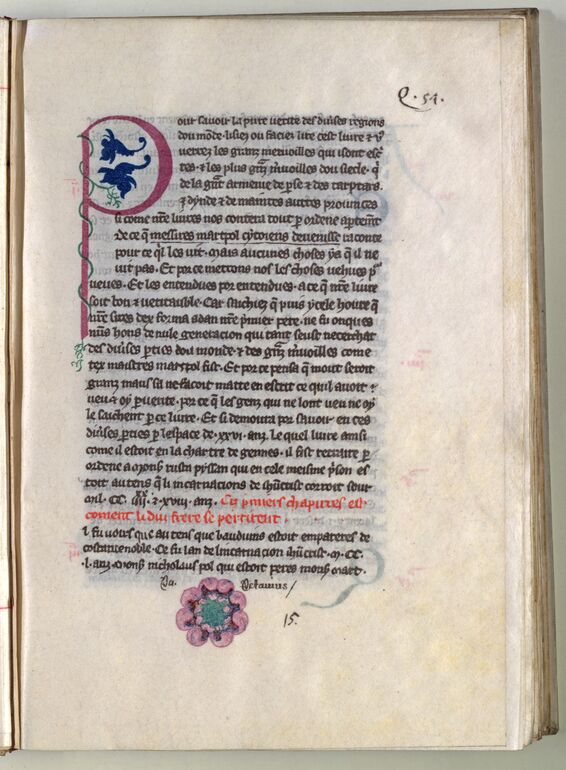 Q. 54.
Pour savoir la pure verite des diuses regions
dou monde. lisies ou faciez lire cest liure & v9
verrez les granz meruoilles qui i sont esc'
tes. & les plus gnz muoilles dou siecle. q
de la gnt armenie de pse & des tarptars.
& dynde & de maintes autres prouinces
si come nre liures nos contera tout p ordene aptemt
De ce q messires marcpol cytoiens deuenisse raconte
pour ce ql les vit. Mais aucunes choses ya q il ne
vit pas. Et por ce metrons nos les choses vehues p
veues. Et les entendues por entendues. a ce q nre liure
soit bon & veritauble. Car sauchiez q puis ycele houre q
nre sires dex forma adan nre pmier pere. ne fu onques
nuns hons de nule generacion qui tant seust ne cerchat
des diuses pties dou monde & des gnz muoilles come
cex maistres marcpol fist. Et por ce pensa q mout seroit
granz maus sa ne faicoit mattre en escrit ce quil auoit &
veu & oy p uerite. por ce q les genz qui ne lont veu ne oy
le sauchent p ce liure. Et si demoura por savoir en ces
diuses pties p lespace de .xxvi. anz. le quel liure ainsi
come il estoit en la chartre de gennes. il fist retraire p
ordene a monsr rusta pyssan qui en cele meisme pson es
toit au tens q li incarnacions de ihucrist corroit sour
mil. CC. iiijxx. & xviij. anz. Cy pmiers chapitres est
coment li dui frere se partirent.
l fu voirs que au tens que bauduins estoit empareres de
costantinenoble. Ce fu lan de lincarnacion ihucrist. M. CC.
.l. anz. Monsr nicholaus pol qui estoit peres monsr marc.
Pa. Petauius /
15.